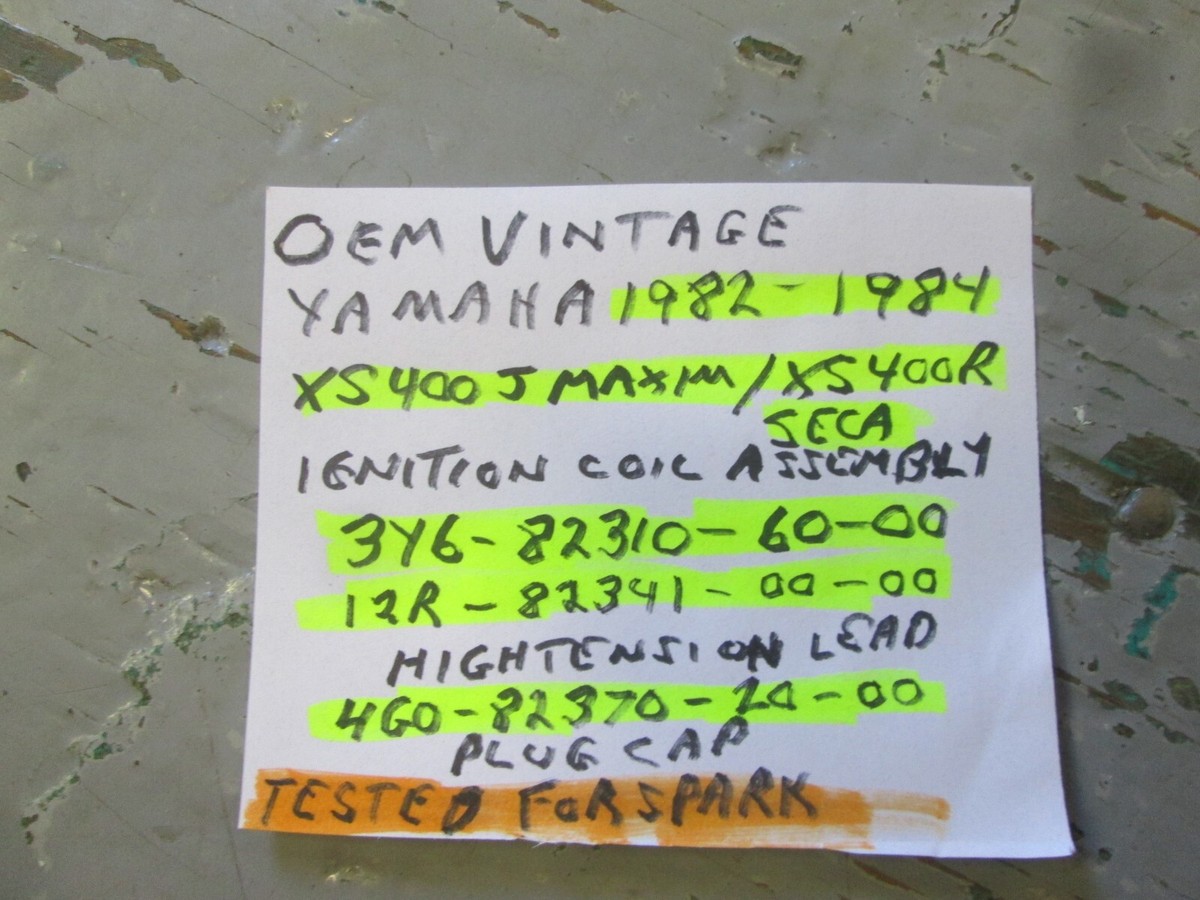 OEM VINTAGE
YAMAHA 1982-1984
XS400J MAXIM/XS400R
SECA
IGNITION COIL ASSEMBLY
3Y6-82310-60-00
12R-82341-00-00
HIGHTENSION LEAD
4G0-82370-20-00
PLUG CAP
TESTED FOR SPARK